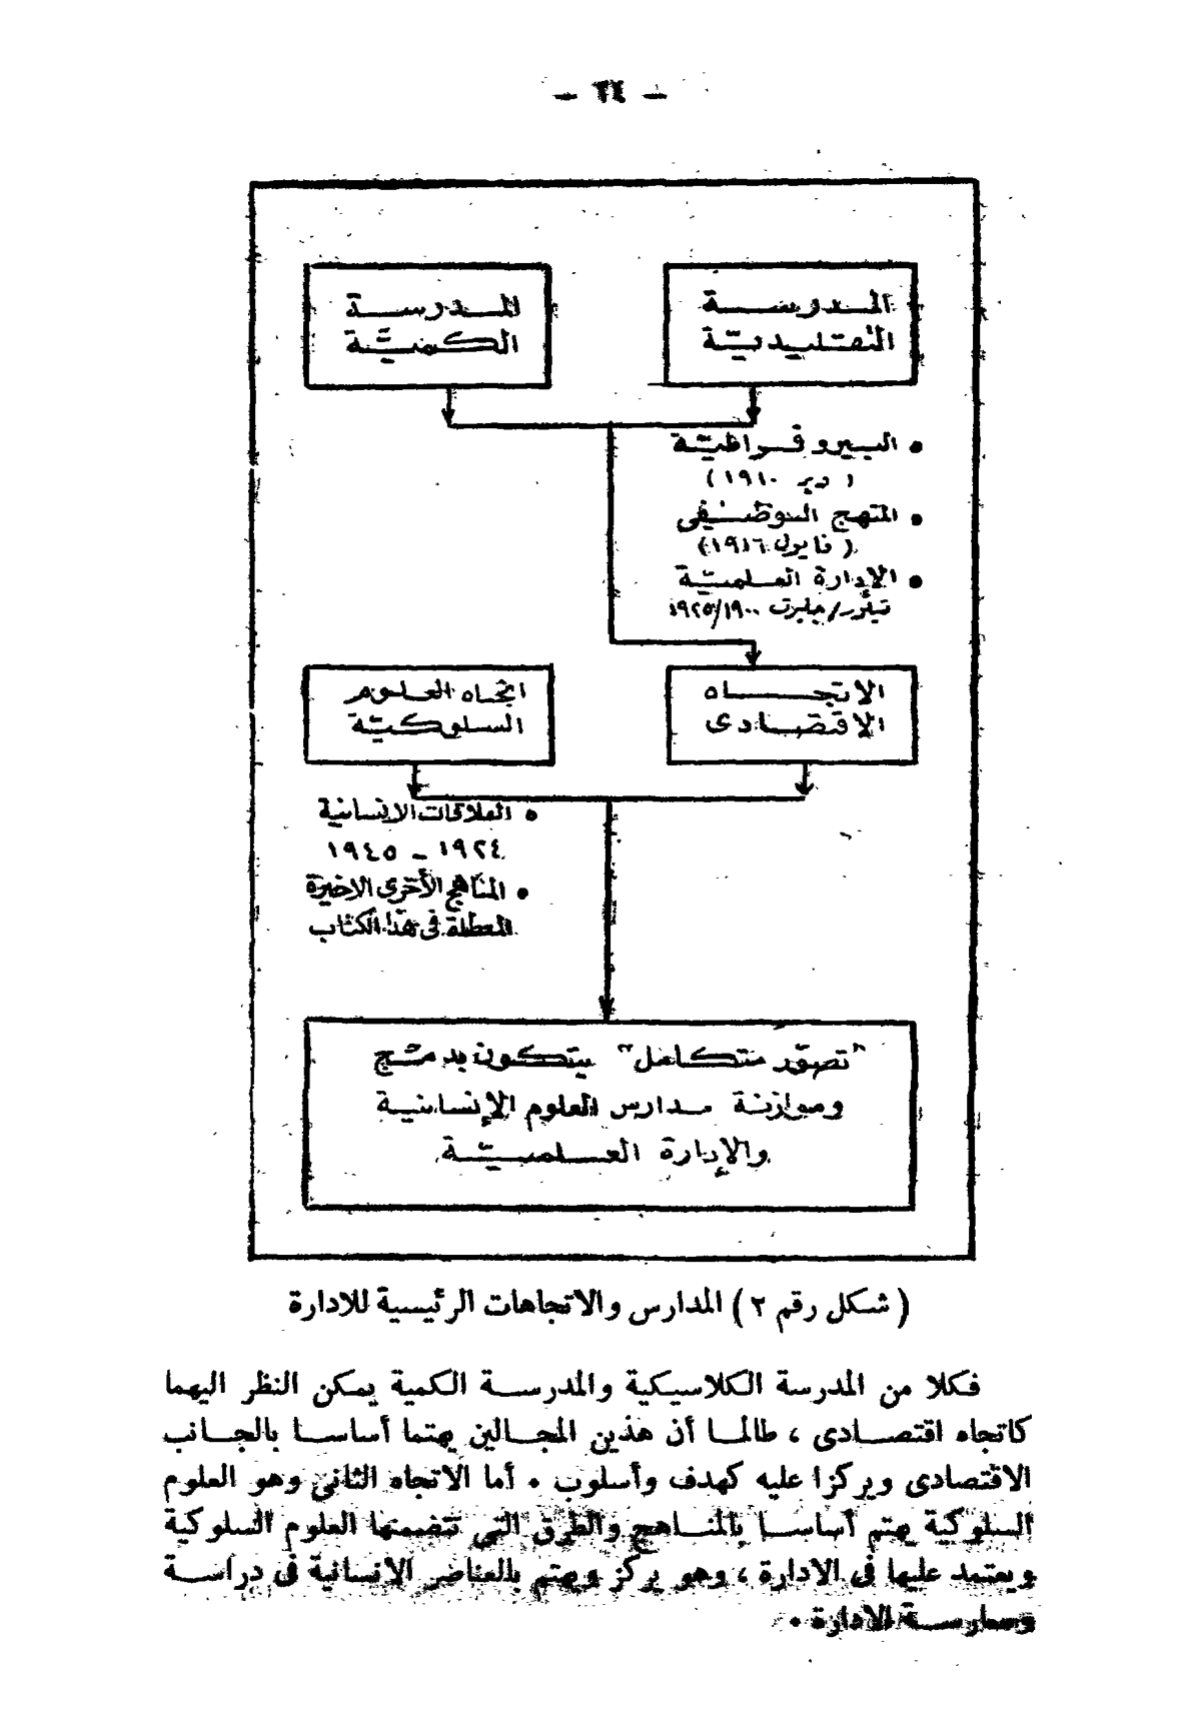 — ٢٤ —
المدرســـة
التقليديّة
المدرســـة
الكميّة
• البيروقراطيّة
( ١٩١٠ )
• المنهج الوظيفى
( فايول ١٩١٦ )
• الإدارة العلميّة
١٩٢٥/١٩٠٠
الاتجـــاه
الاقتصادى
اتجاه العلوم
السلوكيّة
• العلاقات الانسانية
١٩٢٤ - ١٩٤٥
• المناهج الأخرى الاخيرة
فى هذا الكتاب
"تصوّر متكامل" يتكون بدمج
وموازنة مدارس العلوم الإنسانية
والإدارة العلميّة
( شكل رقم ٢ ) المدارس والاتجاهات الرئيسية للادارة
فكلا من المدرسة الكلاسيكية والمدرســة الكمية يمكن النظر اليهما
كاتجاه اقتصــادى ، طالمــا أن هذين المجــالين يهتما أساســا بالجــانب
الاقتصادى ويركزا عليه كهدف وأسلوب • أما الاتجاه الثانى وهو العلوم
السلوكية يهتم أساســا بالمنــاهج والطرق التى تتضمنها العلوم السلوكية
ويعتمد عليها فى الادارة ، وهو يركز ويهتم بالعناصر الانسانية فى دراســة
وممارســة الادارة •